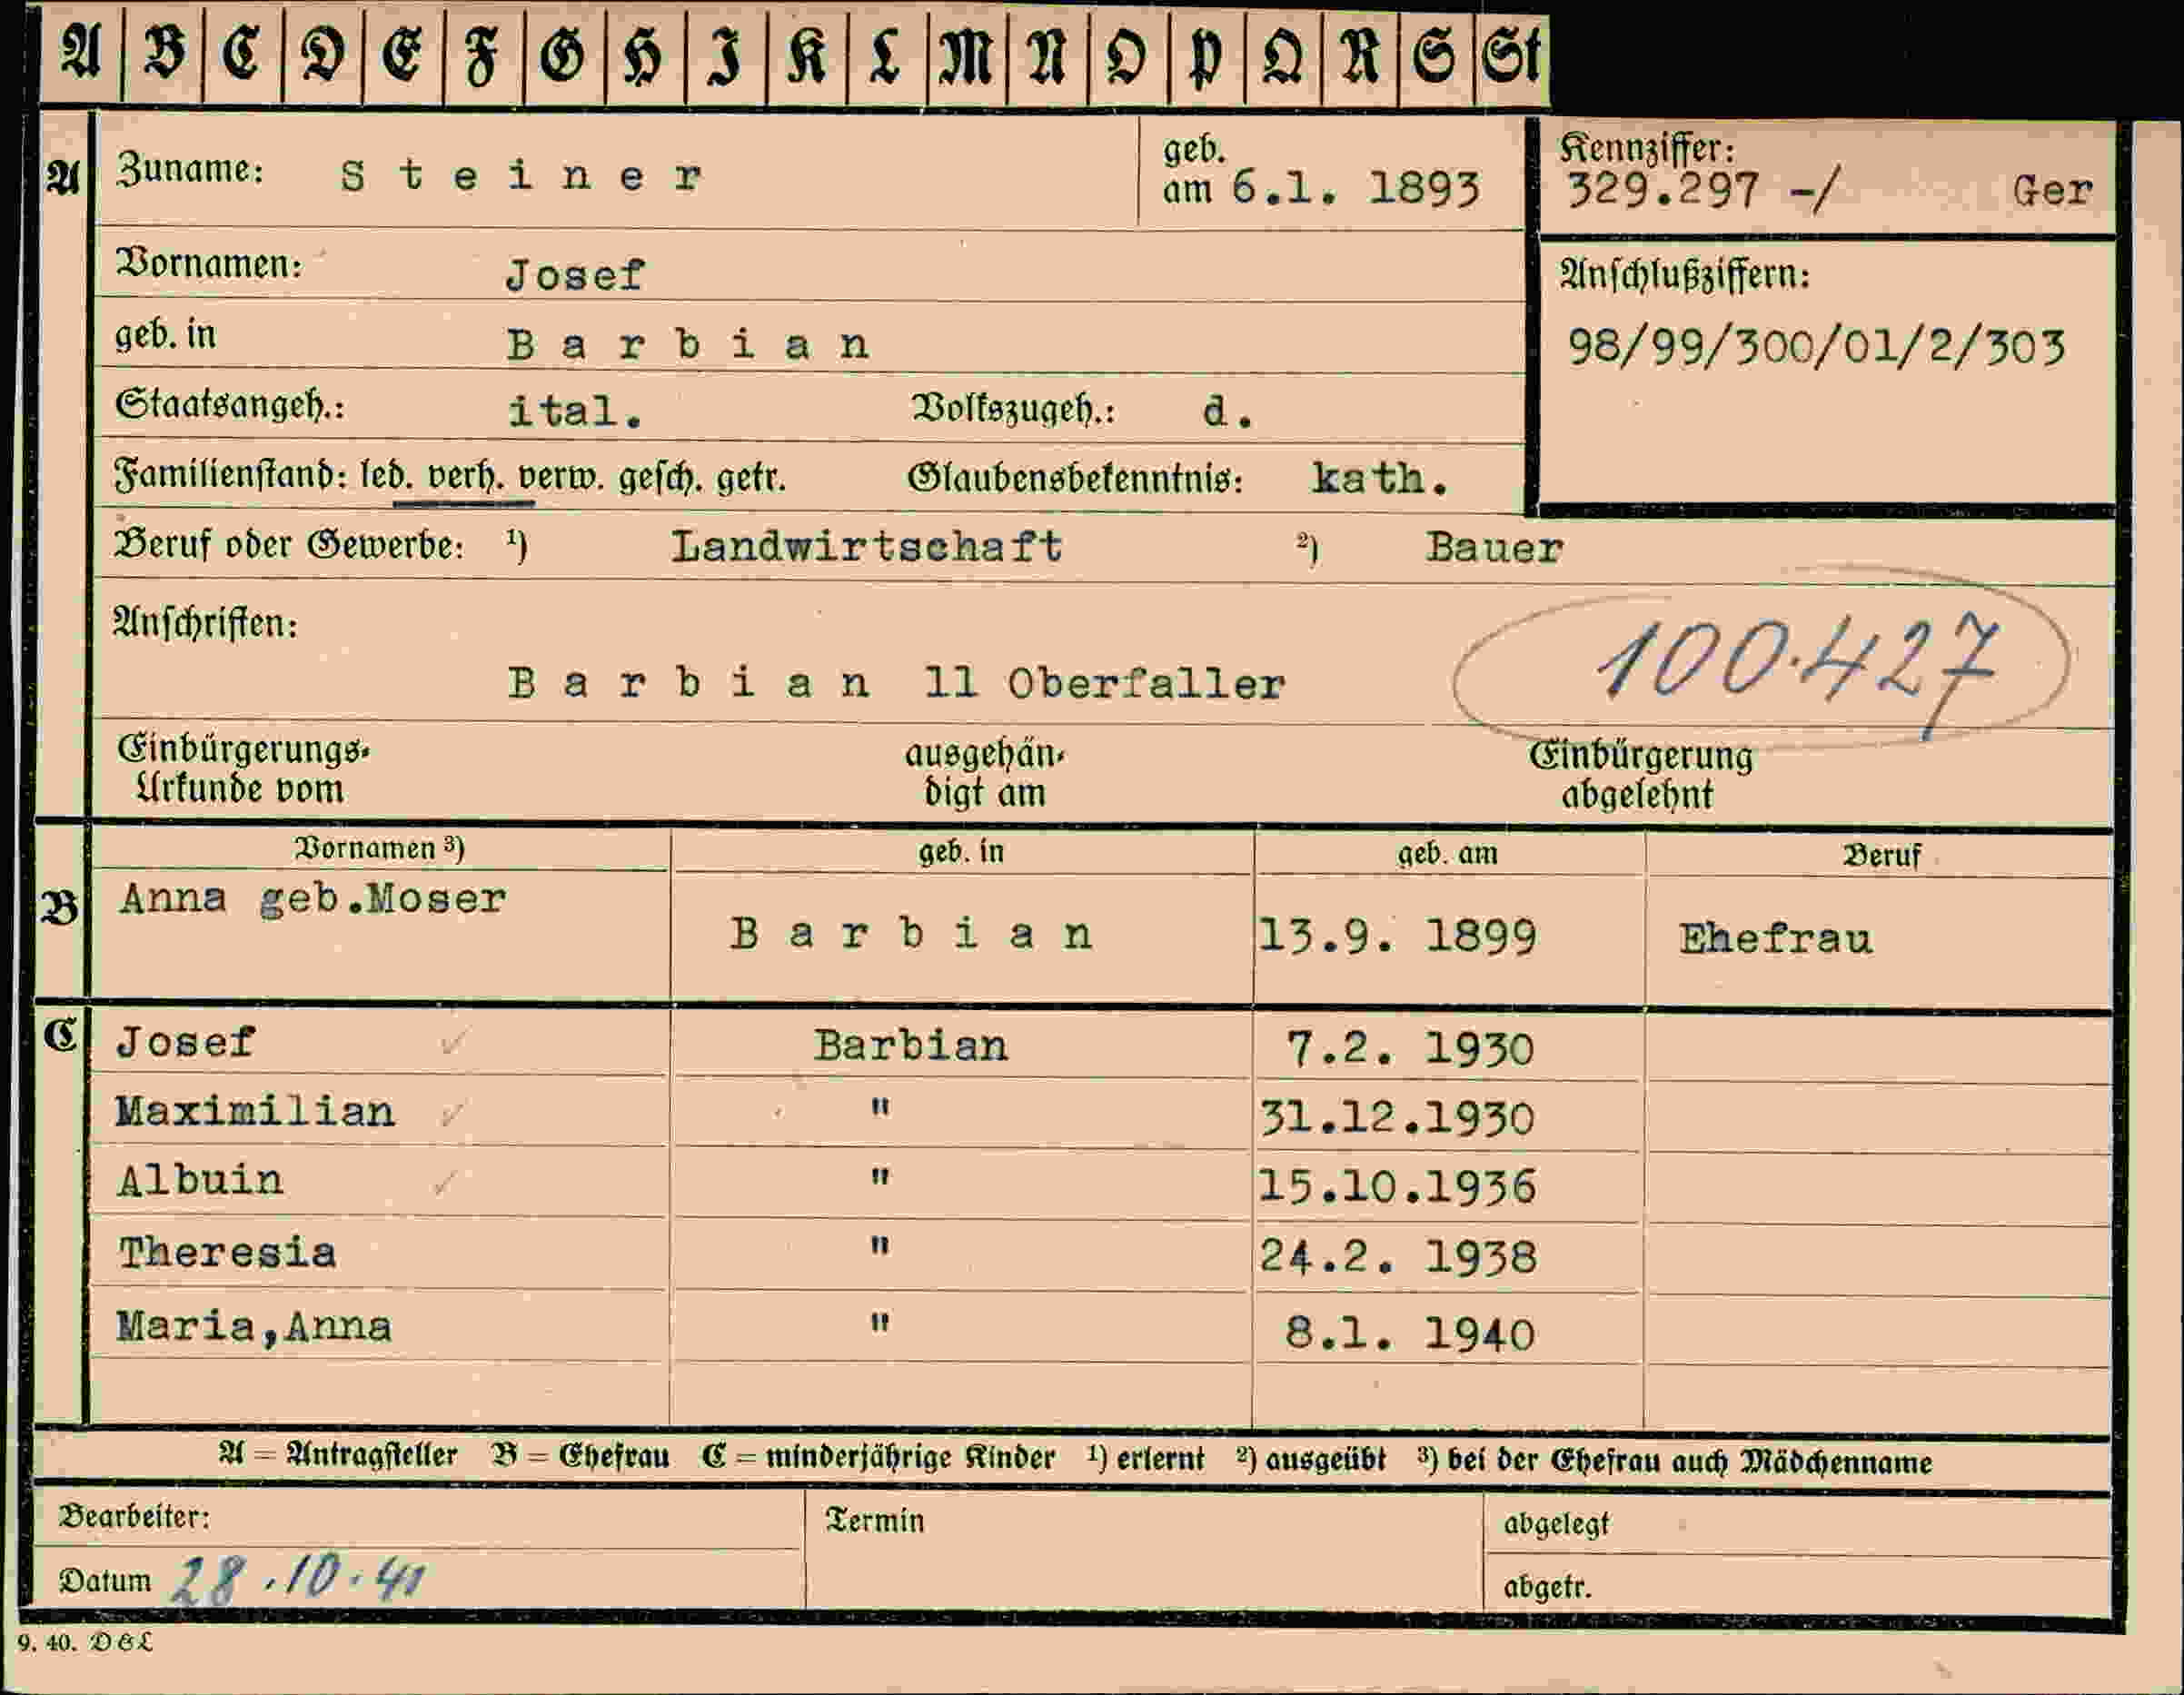 A B C D E F G H I K L M N O P Q R S St
A Zuname: Steiner geb. am 6.1. 1893
Kennziffer: 329.297 -/ Ger
Vornamen: Josef
Anschlußziffern:
98/99/300/01/2/303
geb. in Barbian
Staatsangeh.: ital. Volkszugeh.: d.
Familienstand: led. verh. verw. gesch. getr. Glaubensbekenntnis: kath.
Beruf oder Gewerbe: 1) Landwirtschaft 2) Bauer
Anschriften:
100.427
Barbian 11 Oberfaller
Einbürgerungs- Urkunde vom ausgehän- digt am Einbürgerung abgelehnt
Vornamen 3) geb. in geb. am Beruf
B Anna geb.Moser Barbian 13.9. 1899 Ehefrau
C Josef ✓ Barbian 7.2. 1930
Maximilian ✓ " 31.12.1930
Albuin ✓ " 15.10.1936
Theresia " 24.2. 1938
Maria,Anna " 8.1. 1940
A = Antragsteller B = Ehefrau C = minderjährige Kinder 1) erlernt 2) ausgeübt 3) bei der Ehefrau auch Mädchenname
Bearbeiter: Termin abgelegt
Datum 28.10.41 abgetr.
9. 40. D&L